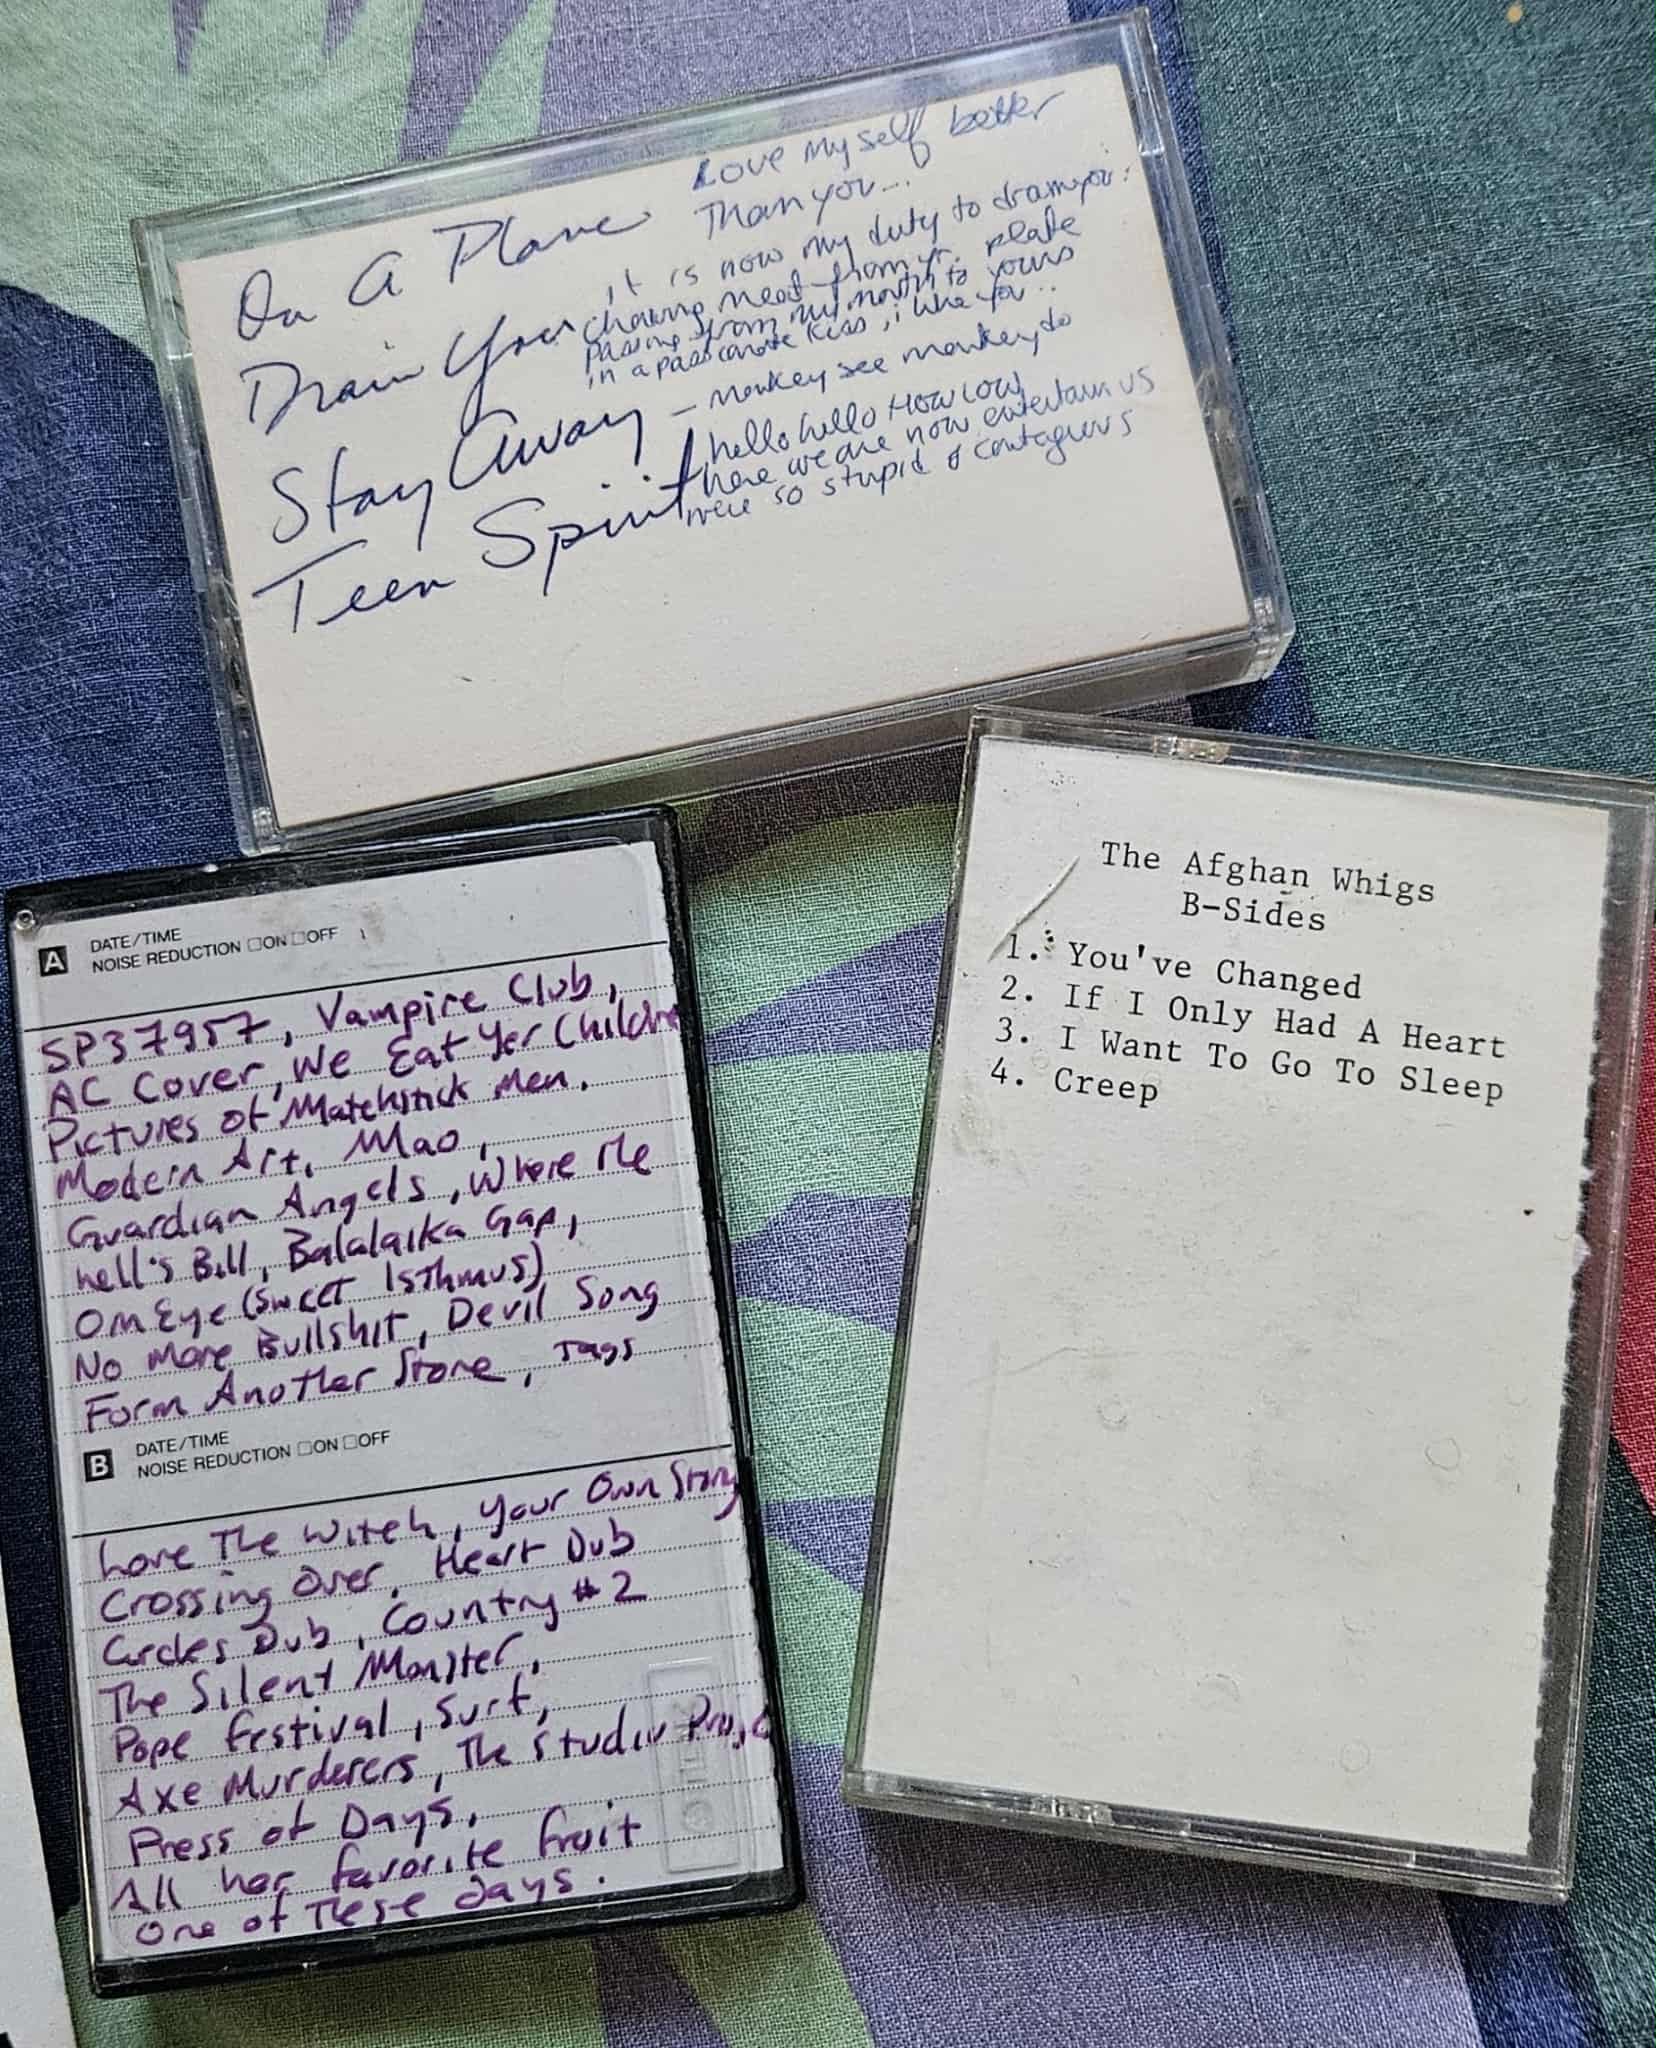 On A Plane
Love myself better
Than you...
Drain You
it is now my duty to drain you:
chewing meat from yr. plate
passing from my mouth to yours
in a passionate kiss, i like you..
Stay Away
- monkey see monkey do
Teen Spirit
hello hello How low
here we are now entertain us
were so stupid & contageous
A DATE/TIME
NOISE REDUCTION □ON □OFF
SP37957, Vampire Club,
AC Cover, We Eat Yer Childre
Pictures of Matchstick Men,
Modern Art, Mao,
Guardian Angels, Where the
hell's Bill, Balalaika Gap,
OM Eye (Sweet Isthmus)
No More Bullshit, Devil Song
Form Another Stone, Tags
B DATE/TIME
NOISE REDUCTION □ON □OFF
Love The Witch, Your Own Story
Crossing Over, Heart Dub
Circles Dub, Country #2
The Silent Monster,
Pope Festival, Surf,
Axe Murderers, The Studio
Press of Days,
All her favorite fruit
One of These days.
The Afghan Whigs
B-Sides
1. You've Changed
2. If I Only Had A Heart
3. I Want To Go To Sleep
4. Creep